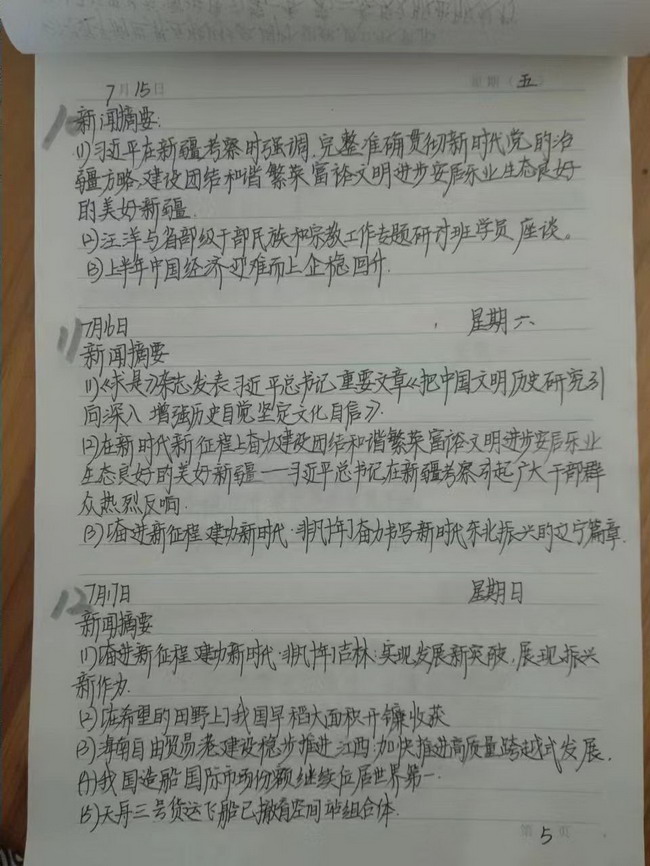 7月15日 星期(五)
10
新闻摘要:
(1)习近平在新疆考察时强调.完整准确贯彻新时代党的治
疆方略.建设团结和谐繁荣富裕文明进步安居乐业生态良好
的美好新疆.
(2)汪洋与省部级干部民族和宗教工作专题研讨班学员座谈。
(3)上半年中国经济迎难而上企稳回升.
11 7月16日 星期六
新闻摘要
(1)《求是》杂志发表习近平总书记重要文章《把中国文明历史研究引
向深入 增强历史自觉坚定文化自信》.
(2)在新时代新征程上奋力建设团结和谐繁荣富裕文明进步安居乐业
生态良好的美好新疆——习近平总书记在新疆考察引起广大干部群
众热烈反响.
(3)[奋进新征程 建功新时代·非凡十年]奋力书写新时代东北振兴的辽宁篇章.
12 7月17日 星期日
新闻摘要
(1)[奋进新征程 建功新时代·非凡十年]吉林:实现发展新突破,展现振兴
新作为.
(2)[在希望的田野上]我国早稻大面积开镰收获
(3)海南自由贸易港建设稳步推进 江西:加快推进高质量跨越式发展.
(4)我国造船国际市场份额继续位居世界第一.
(5)天舟三号货运飞船已撤离空间站组合体.
第5页